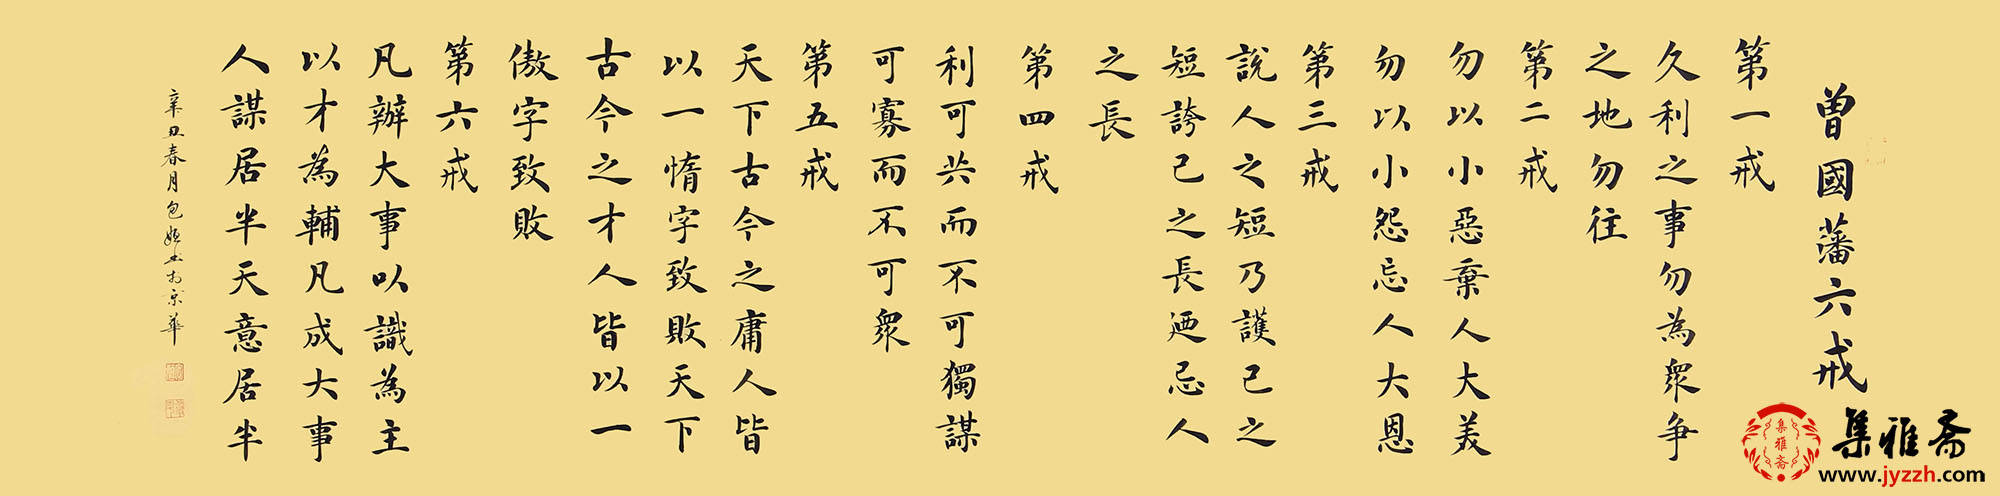 曾國藩六戒
第一戒
久利之事勿為眾争
之地勿往
第二戒
勿以小惡棄人大美
勿以小怨忘人大恩
第三戒
說人之短乃護己之
短誇己之長迺忌人
之長
第四戒
利可共而不可獨謀
可寡而不可眾
第五戒
天下古今之庸人皆
以一惰字致敗天下
古今之才人皆以一
傲字致敗
第六戒
凡辦大事以識為主
以才為輔凡成大事
人謀居半天意居半
辛丑春月包書於京華
集雅斋
集雅斋
www.jyzzh.com